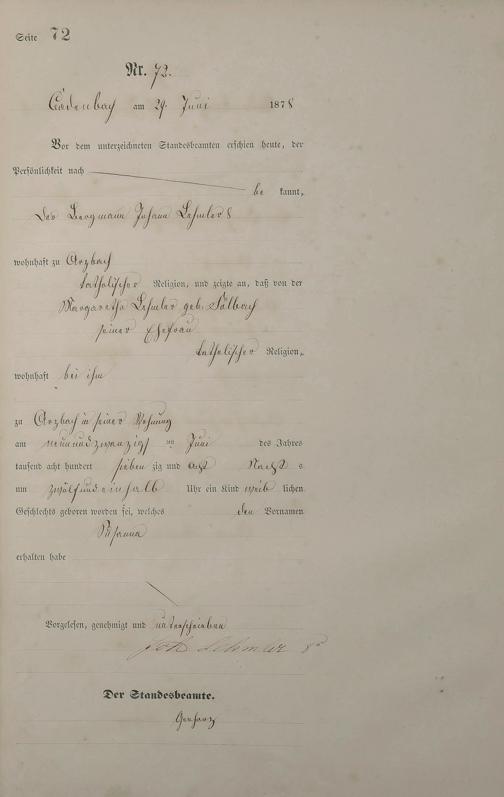 Seite 72
Nr. 72.
Cadenbach am 29. Juni 1878
Vor dem unterzeichneten Standesbeamten erschien heute, der
Persönlichkeit nach
be kannt,
der Bergmann Johann Lehmler 8
wohnhaft zu Arzbach
katholischer Religion, und zeigte an, daß von der
Margaretha Lehmler geb.
seiner Ehefrau
katholischer Religion,
wohnhaft bei ihm
zu Arzbach in seiner Wohnung
am neunundzwanzigst en Juni des Jahres
tausend acht hundert sieben zig und acht Nachts
um zwölfundeinhalb Uhr ein Kind weib lichen
Geschlechts geboren worden sei, welches den Vornamen
Susanna
erhalten habe
Vorgelesen, genehmigt und unterschrieben
Joh Lehmler 8
Der Standesbeamte.
Gerharz